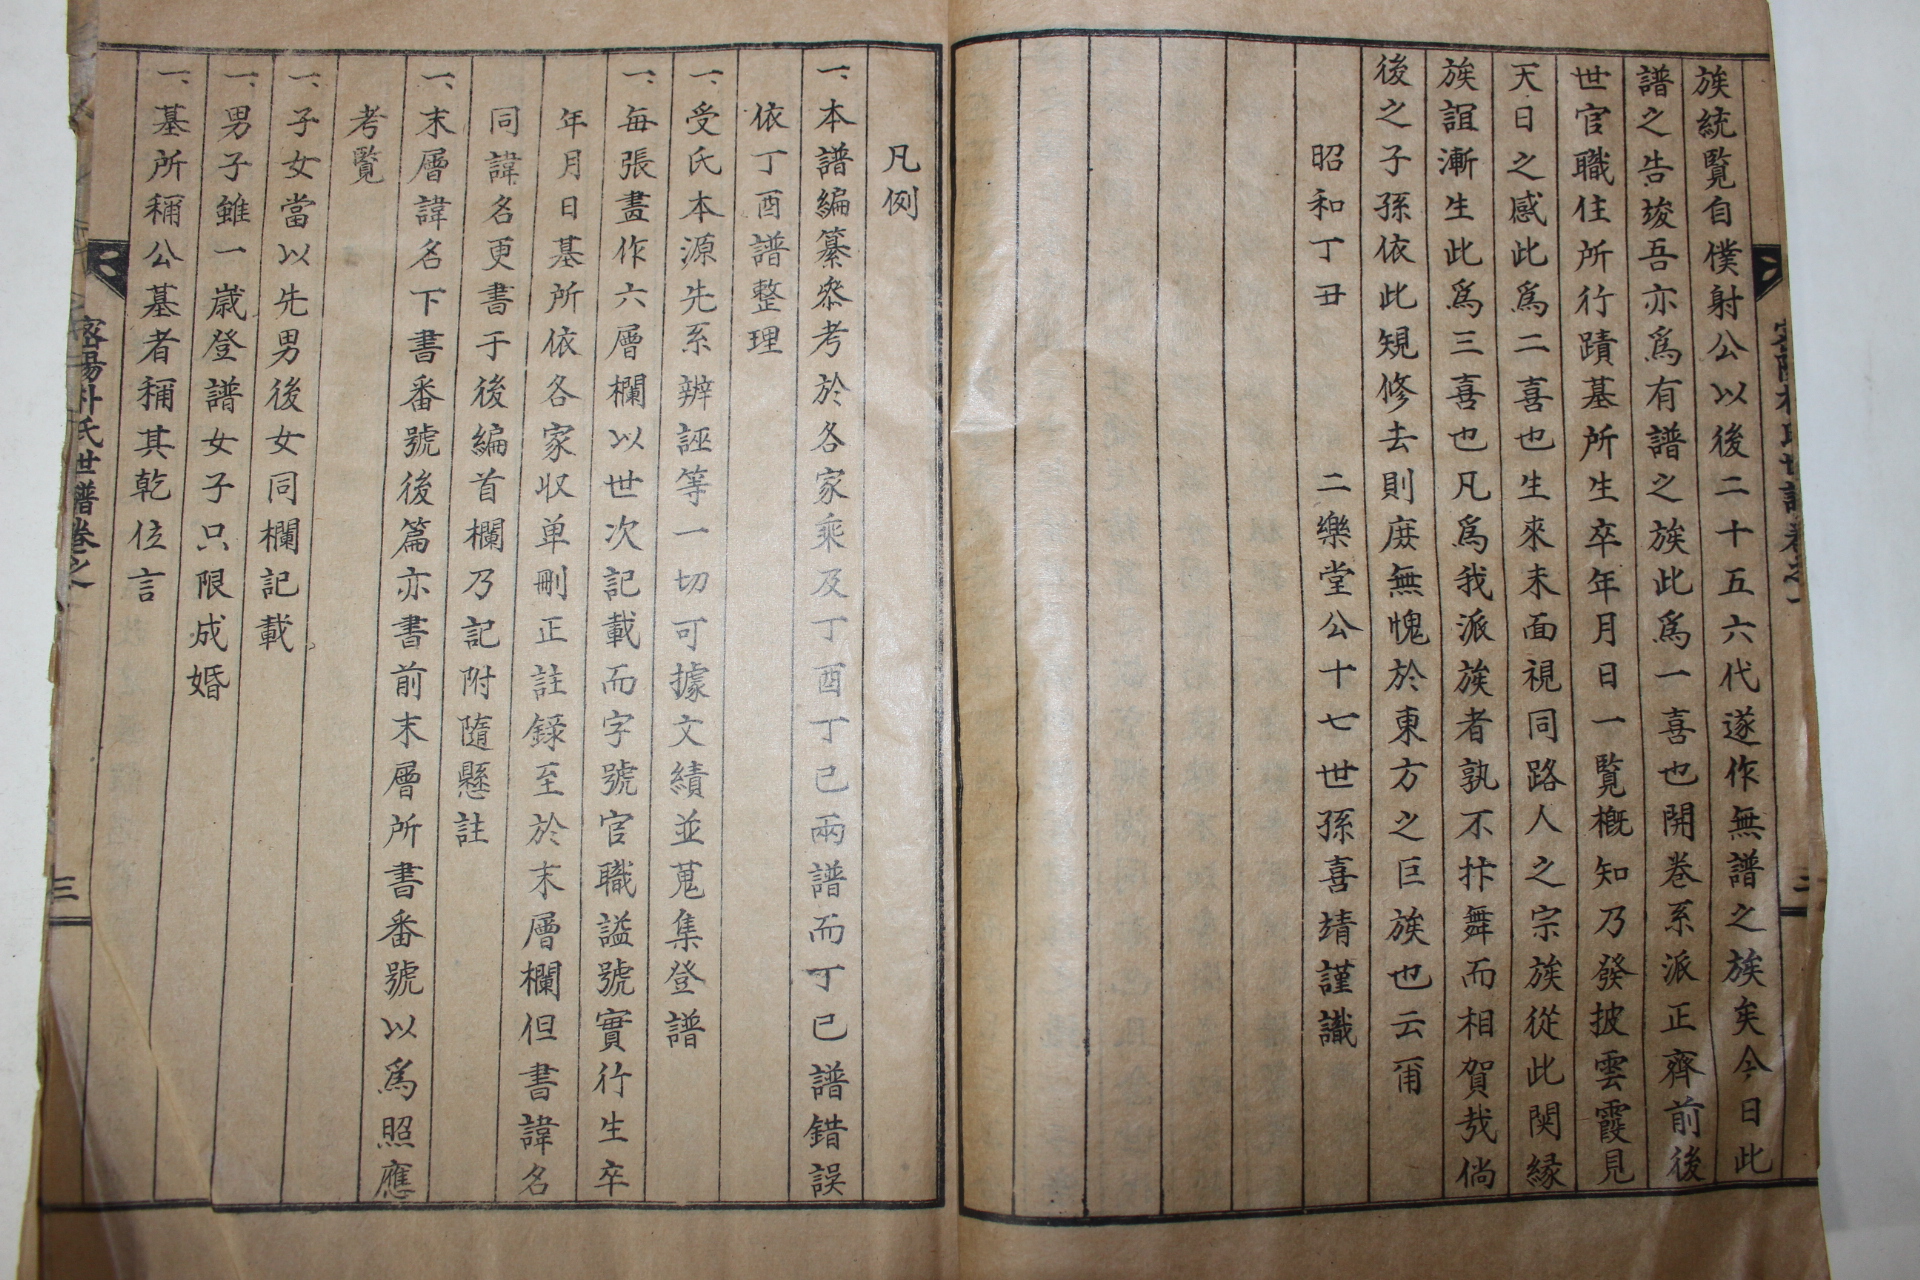 族統覧自僕射公以後二十五六代遂作無譜之族矣今日此
譜之告竣吾亦爲有譜之族此爲一喜也開卷系派正齊前後
世官職住所行蹟墓所生卒年月日一覧槪知乃發披雲霞見
天日之感此爲二喜也生來未面視同路人之宗族從此関縁
族誼漸生此爲三喜也凡爲我派族者孰不抃舞而相賀哉倘
後之子孫依此規修去則庻無愧於東方之巨族也云甭
昭和丁丑 二樂堂公十七世孫喜靖謹識
凡例
一、本譜編纂叅考於各家乘及丁酉丁己兩譜而丁巳譜錯誤
依丁酉譜整理
一、受氏本源先系辨誣等一切可據文績並蒐集登譜
一、每張畫作六層欄以世次記載而字號官職謚號實行生卒
年月日墓所依各家収单刪正註録至於末層欄但書諱名
同諱名更書于後編首欄乃記附隨懸註
一、末層諱名下書番號後篇亦書前末層所書番號以爲照應
考覧
一、子女當以先男後女同欄記載
一、男子雖一歳登譜女子只限成婚
一、墓所稱公墓者稱其乾位言
密陽朴氏世譜卷之一
三